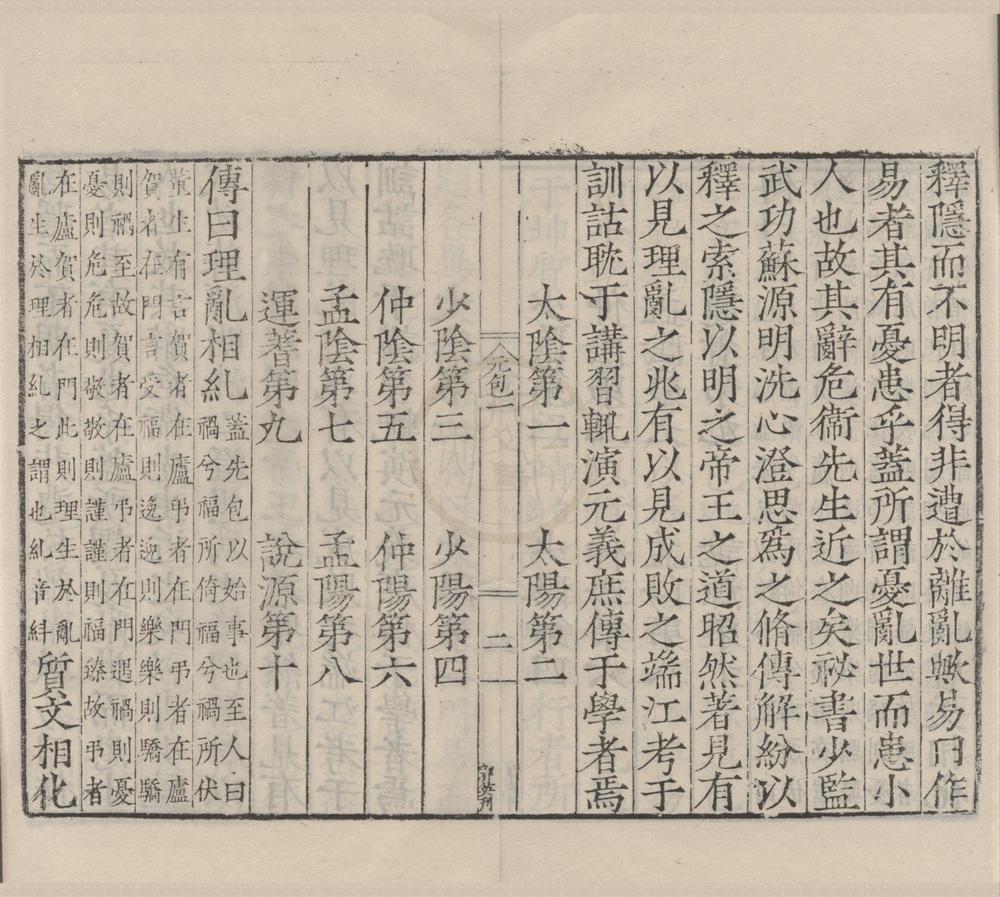 釋隱而不明者得非遭於離亂歟易曰作
易者其有憂患乎蓋所謂憂亂世而患小
人也故其辭危衞先生近之矣祕書少監
武功蘇源明洗心澄思爲之脩傳解紛以
釋之索隱以明之帝王之道昭然著見有
以見理亂之兆有以見成敗之端江考于
訓詁耽于講習輒演元義庶傳于學者焉
太陰第一　太陽第二
元包一　二
少陰第三　少陽第四
仲陰第五　仲陽第六
孟陰第七　孟陽第八
運蓍第九　說源第十
傳曰理亂相糺
蓋先包以始事也至人曰
禍兮福所倚福兮禍所伏
董生有言賀者在廬弔者在門弔者在廬
賀者在門言受福則逸逸則樂樂則驕驕
則禍至故賀者在廬弔者在門遇禍則憂
憂則危危則敬敬則謹謹則福臻故弔者
在廬賀者在門此則理生於亂
亂生於理相糺之謂也糺音糾
質文相化